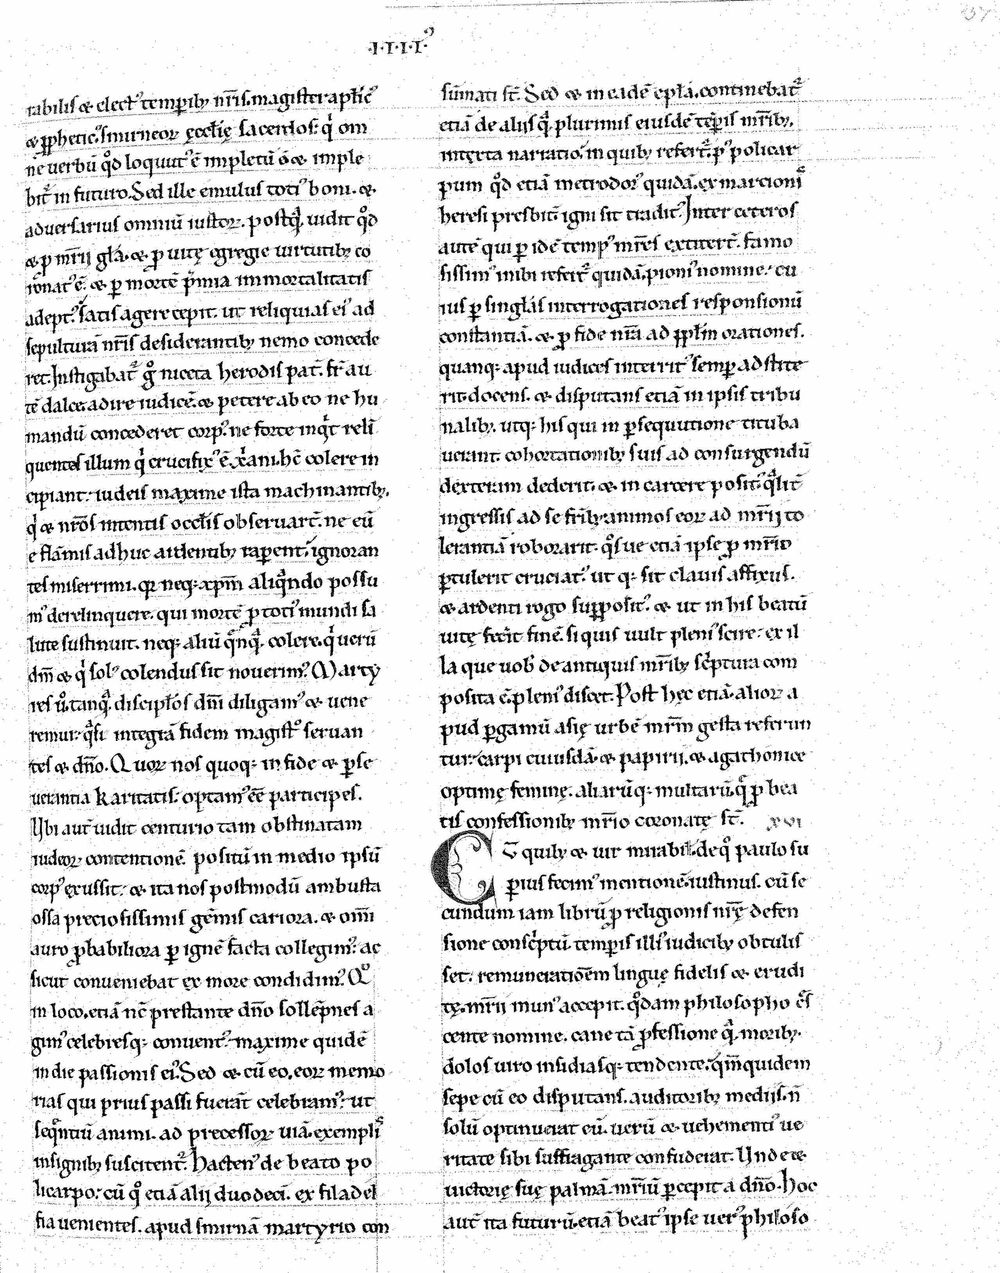 ·I·I·I·I·ꝰ
37
rabilis ⁊ electꝰ temporibꝫ nr̄is. magister apl̄icꝰ
⁊ ꝓpheticꝰ. smirneoꝝ ęccl̄ię sacerdos: qͥ om
ne uerbū qͦd loquutꝰ ē impletū ē ⁊ imple
bit̄ in futuro. Sed ille emulus totiꝰ boni. ⁊
aduersarius omniū iustoꝝ. postqͣ uidit qͦd
⁊ ꝑ mr̄ii gl̄a. ⁊ ꝓ uitę egregie uirtutibꝫ co
ronatꝰ ē. ⁊ ꝑ mortē p̄mia immortalitatis
adeptꝰ. satis agere cepit. ut reliquias eiꝰ ad
sepulturā nr̄is desiderantibꝫ nemo concede
ret. Instigabat̄ gͦ niceta herodis pat̄. fr̄ au
tē dalce. adire iudicē. ⁊ petere ab eo ne hu
mandū concederet corpꝰ. ne forte inqͥt reli
quentes illum qͥ crucifixꝰ ē xp̄ani. hc̄ colere in
cipiant: iudeis maxime ista machinantibꝫ.
qͥ ⁊ nr̄os intentis occl̄is obseruart̄. ne eū
e flāmis adhuc ardentibꝫ raperent: ignoran
tes miserrimi. qꝛ neqꝫ xp̄m aliqͣndo possu
mꝰ derelinquere. qui mortē ꝓ totiꝰ mundi sa
lute sustinuit. neqꝫ aliū qͣnqͣ colere. qͥ uerū
dm̄ ⁊ qͥ solꝰ colendus sit nouerimꝰ. Marty
res ū. tanqͣ discipl̄os dn̄i diligamꝰ ⁊ uene
remur: qͣsi integrā fidem magistͦ seruan
tes ⁊ dn̄o. Quoꝝ nos quoqꝫ in fide ⁊ ꝑse
uerantia karitatis: optamꝰ ēe participes.
Ubi aut̄ uidit centurio tam obstinatam
iudeoꝝ contentionē positū in medio ipsū
corpꝰ exussit: ⁊ ita nos postmodū ambusta
ossa preciosissimis gēmis cariora. ⁊ om̄i
auro ꝓbabiliora ꝑ ignē facta collegimꝰ: ac
sicut conueniebat ex more condidimꝰ. Qͦ
in loco. etiā nc̄ prestante dn̄o sollēpnes a
gimꝰ celebresqꝫ conuentꝰ: maxime quidē
in die passionis eiꝰ. Sed ⁊ cū eo. eoꝝ memo
rias qui prius passi fuerāt celebramꝰ: ut
seqͣntiū animi. ad precessoꝝ uiā. exempliꝰ
insignibꝫ suscitent̄. Hactenꝰ de beato po
licarpo: cū qͦ etiā alii duodecī. ex filadel
fia uenientes. apud smirnā martyrio con
sūmati st̄. Sed ⁊ in eadē epl̄a. continebat̄
etiā de aliis qͥ plurimis eiusdē tēpis mr̄ibꝫ.
inserta narratio. in quibꝫ refert̄. pꝰ policar
pum qͦd etiā metrodorꝰ quidā. ex marcioniꝰ
heresi presbit̄ igni sit traditꝰ. Inter ceteros
autē qui ꝑ idē tempꝰ mr̄es extitert̄. famo
sissimꝰ inibi refert̄ quidā. pioniꝰ nomine: cu
ius ꝑ singl̄as interrogationes responsionū
constantiā. ⁊ ꝓ fide nr̄a ad ppl̄m orationes.
quanqꝫ apud iudices interritꝰ semꝑ adstite
rit docens. ⁊ disputans etiā in ipsis tribu
nalibꝫ. utqꝫ his qui in ꝑsequutione tituba
uerant. cohortationibꝫ suis ad consurgendū
dexteram dederit. ⁊ in carcere positꝰ. qͣlit̄
ingressis ad se fr̄ibꝫ animos eoꝝ ad mr̄ii to
lerantiā roborarit. qͦs ue etiā ipse ꝓ mr̄io
ꝑtulerit cruciatꝰ. ut qꝫ sit clauis affixus.
⁊ ardenti rogo suꝑpositꝰ. ⁊ ut in his beatū
uitę fecit̄ finē. si quis uult pleniꝰ scire: ex il
la que uob̄ de antiquis mr̄ibꝫ sc̄ptura com
posita ē. pleniꝰ discet. Post hęc etiā. alioꝝ a
pud ꝑgamū asię urbē mr̄m gesta referun
tur: carpi cuiusdā. ⁊ papirii. ⁊ agathonice
optimę feminę. aliarūqꝫ multarū. qͥ ꝓ bea
tis confessionibꝫ mr̄io coronatę st̄. xvi
ET quibꝫ ⁊ uir mirabilis. de qͦ paulo su
ꝑius fecimꝰ mentionē. iustinus. cū se
cundum iam librū ꝓ religionis nr̄ę defen
sione consc̄ptū. tempis illiꝰ iudicibꝫ obtulis
set: remunerationem linguę fidelis ⁊ erudi
tę. mr̄ii munꝰ accepit. qͦdam philosopho cr̄s
cente nomine. cane tā ꝓfessione qͣ moribꝫ.
dolos uiro insidiasqꝫ tendente. qm̄quidem
sepe cū eo disputans. auditoribꝫ mediis. n̄
solū optinuerat eū. uerū ⁊ uehementiꝰ ue
ritate sibi suffragante confuderat. Unde ⁊
uictorię suę palmā. mr̄iū ꝑcepit a dn̄o. Hoc
aut̄ ita futurū. etiā beatꝰ ipse uerꝰ philoso